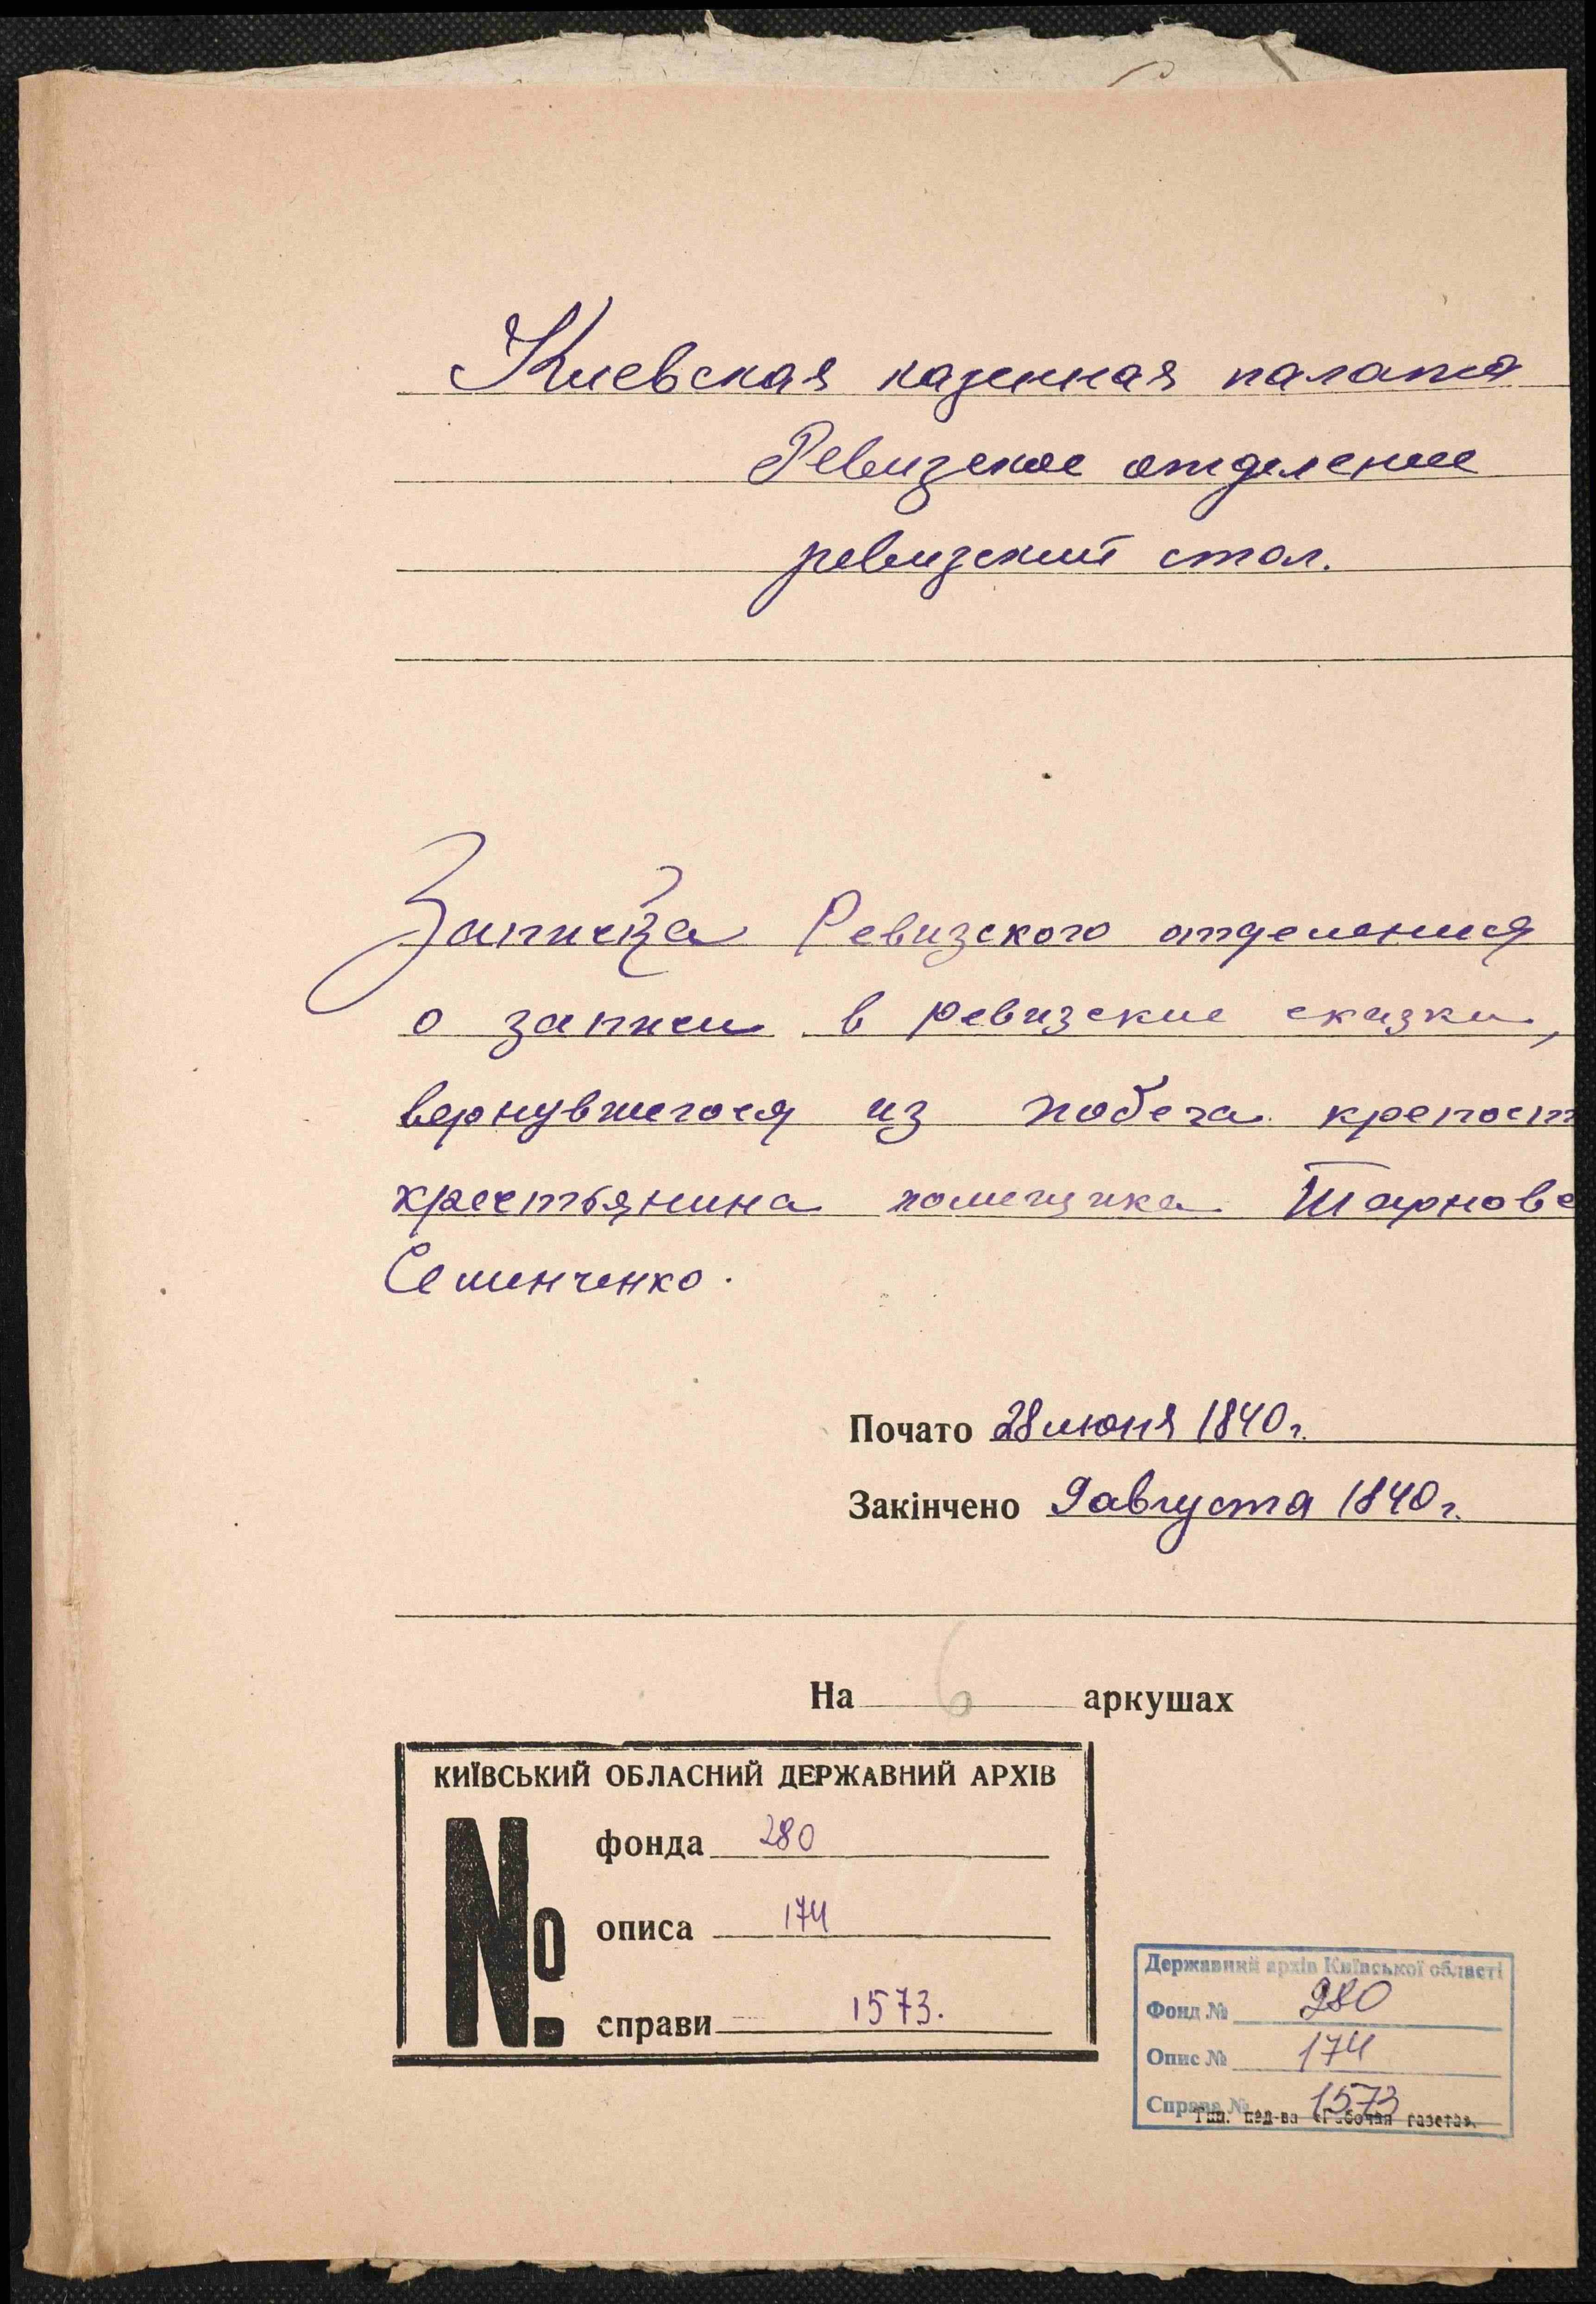 Киевская казенная палата
Ревизское отделение
ревизский стол.
Записка Ревизского отделения
о записи в ревизские сказки,
вернувшегося из побега крепост
крестьянина помещика Тарновс
Семенченко.
Почато 28 июня 1840 г.
Закінчено 9 августа 1840 г.
На 6 аркушах
КИЇВСЬКИЙ ОБЛАСНИЙ ДЕРЖАВНИЙ АРХІВ
№
фонда 280
описа 174
справи 1573.
Державний архів Київської області
Фонд № 280
Опис № 174
Справа № 1573
Тип. изд-ва «Рабочая газета».